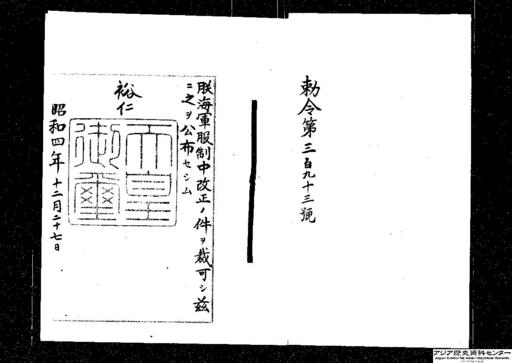 勅令第三百九十三號
朕海軍服制中改正ノ件ヲ裁可シ茲
ニ之ヲ公布セシム
裕仁
天皇
御璽
昭和四年十二月二十七日
アジア歴史資料センター
Japan Center for Asian Historical Records